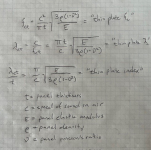 f_c = c²/πt √(3ρ(1-σ²)/E) = "thin plate f_c"
= πt/c √(E/3ρ(1-σ²)) = "thin plate λ_c"
= π/c √(E/3ρ(1-σ²)) = "thin plate index"
t = panel thickness
c = speed of sound in air
E = panel elastic modulus
ρ = panel density
σ = panel poisson's ratio